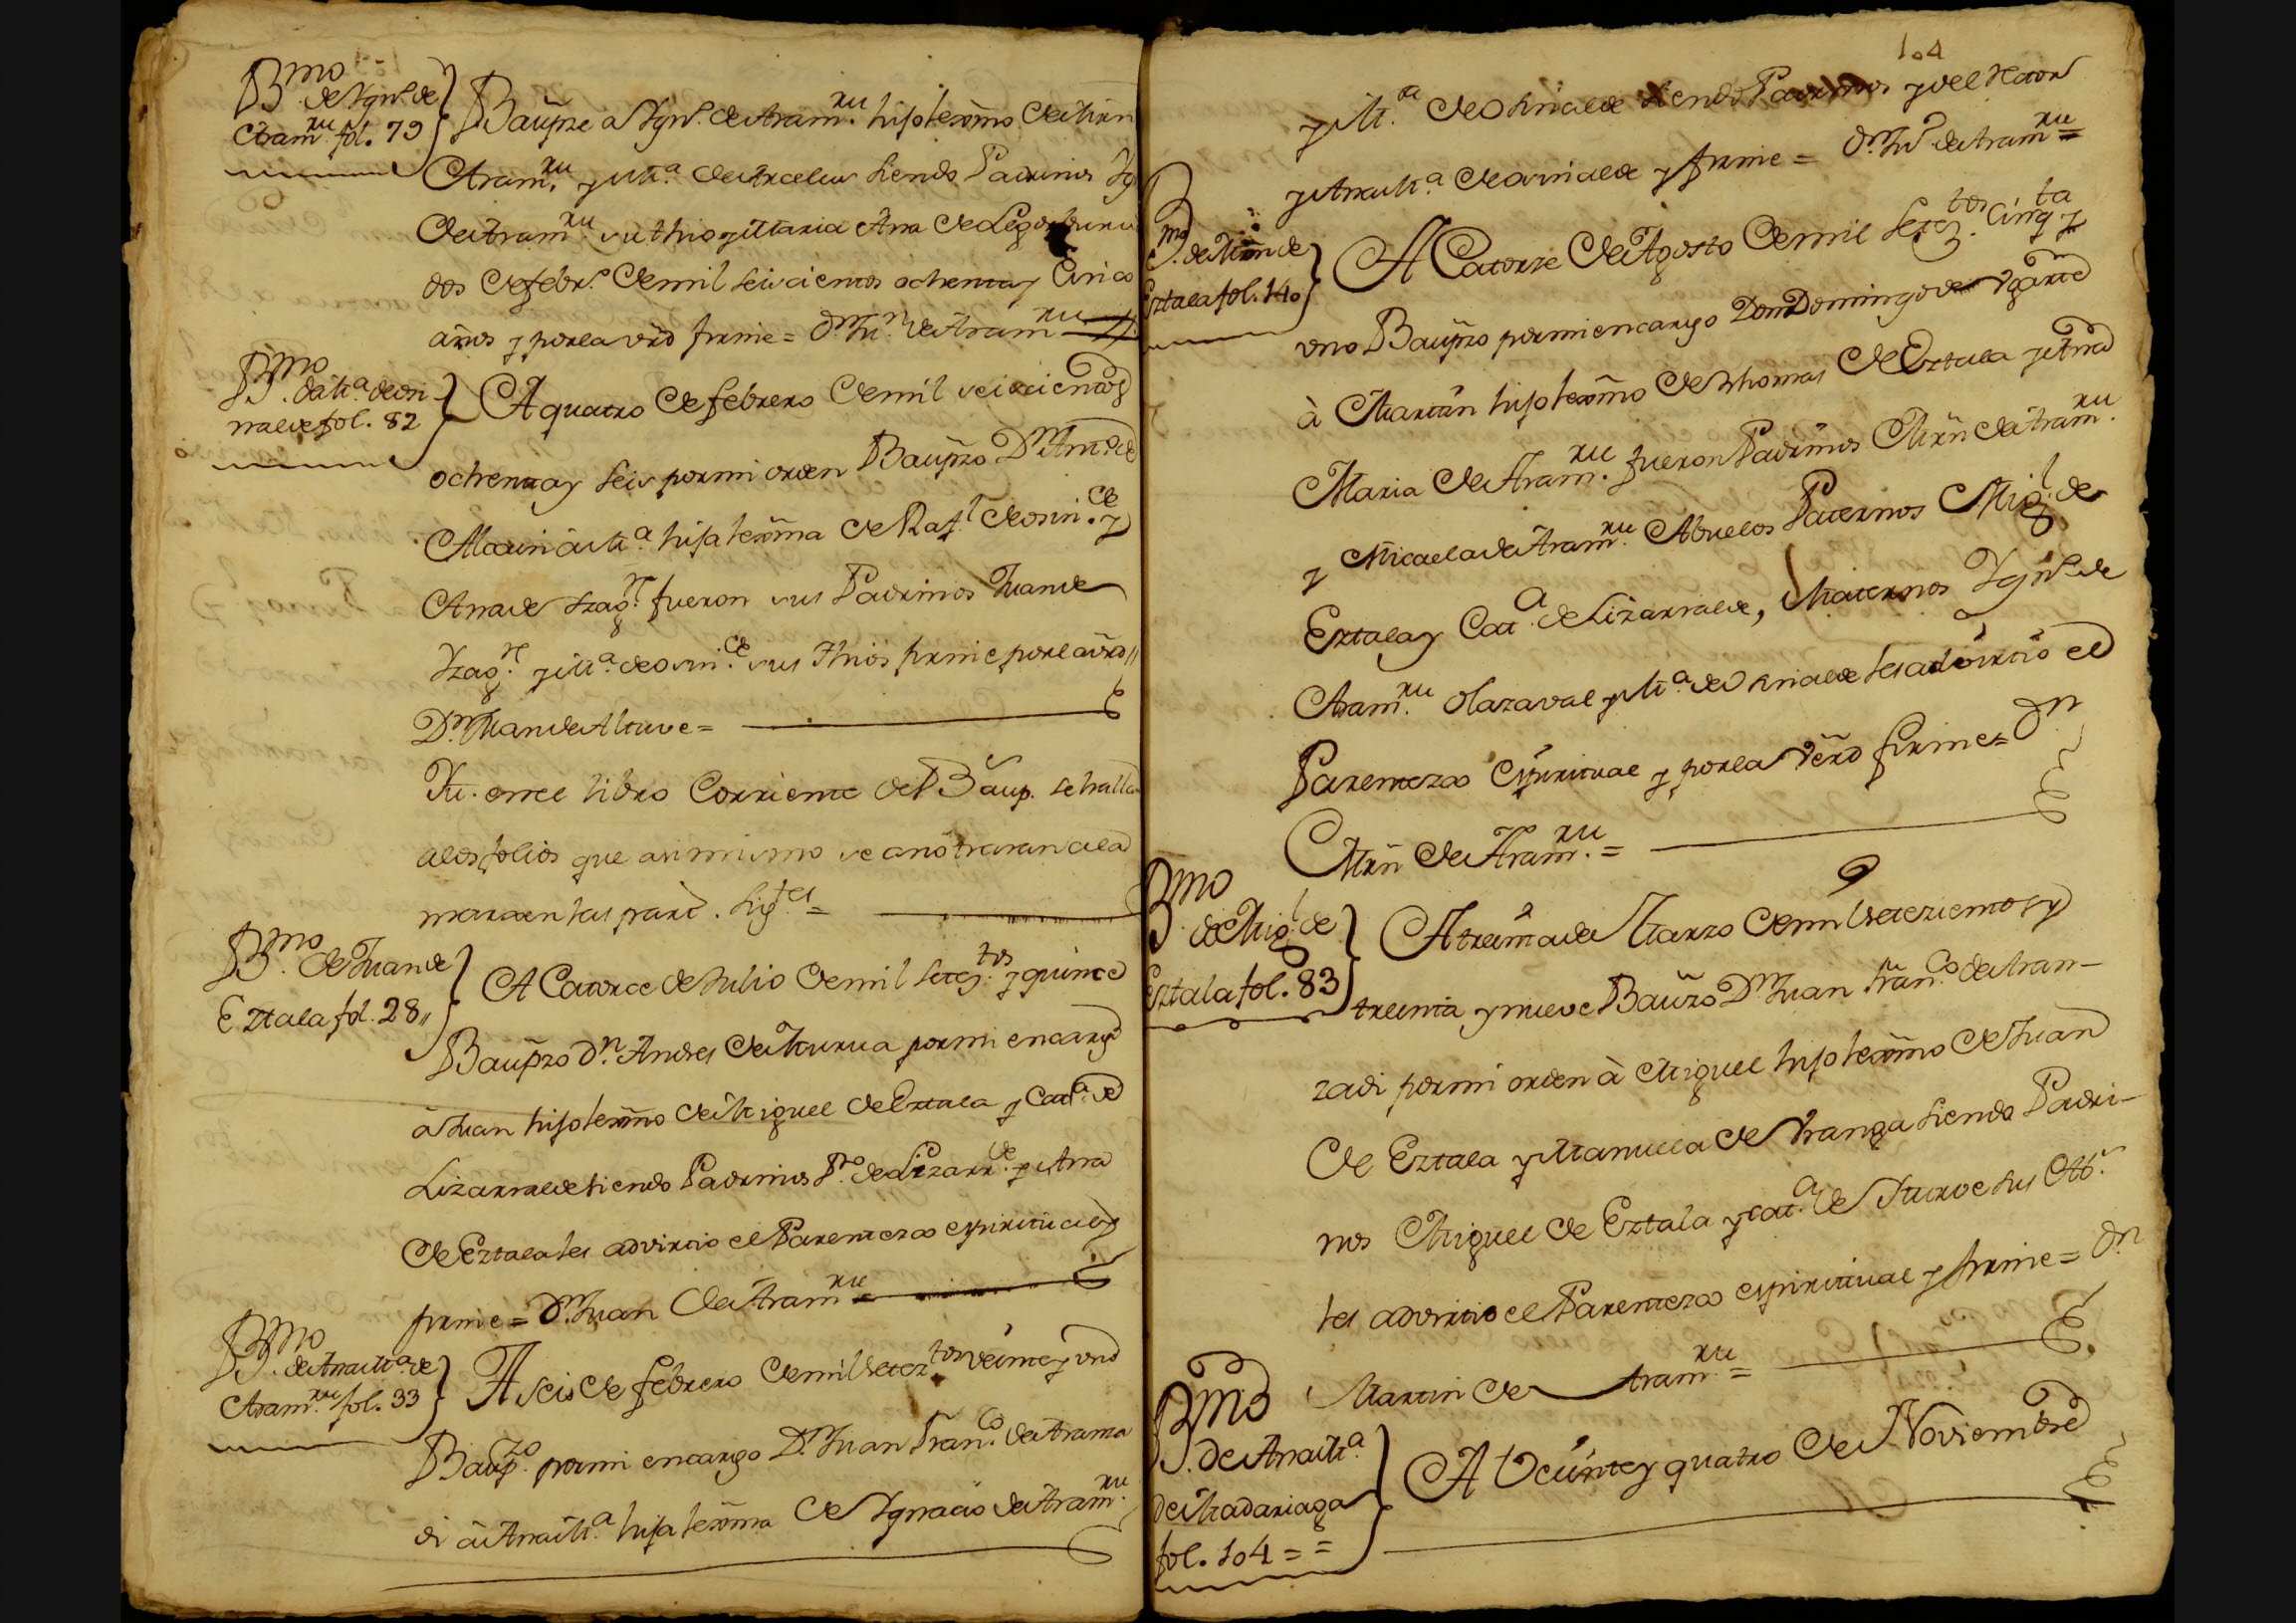 Bmo. de Ygnº. de
Aram.ru fol. 79
Baupze a Ygnº. de Aram.ru hijo lexmo de Mrn
Aram.ru y Mª. de Arcelus siendo Padrinos Yg
de Aram.ru su thio y Maria Ana de Legor
dos de febrº. de mil seiscientos ochenta y Cinco
años y por la verd firme = Dn. Juº. de Aram.ru
Bmo. de Mª. de Ori-
nalde fol. 82
A quatro de febrero de mil seiscientos
ochenta y seis por mi orden Baupzo Dn. Antº. de
Madin a Mª. hija lexma de Rafl. de Orin.de y
Ana de Yzag.re fueron sus Padrinos Juan de
Yzag.re y Mª. de Orin.de sus Thios firme por la verd //
Dn. Juan de Altuve =
Yt. en el libro Corriente de Baup. se halla
a los folios que asimismo se anotaran a la
margen las part. sigtes =
Bmo. de Juan de
Eztala fol. 28 //
A Catorce de Julio de mil setez.tos y quince
Baupzo Dn. Andres de Iturua por mi encargo
à Juan hijo lexmo de Miguel de Eztala y Catª. de
Lizarralde siendo Padrinos Pº. de Lizarr.de y Ana
de Eztala les advirtio el Parentezco espiritual y
firme = Dn. Juan de Aram.ru =
Bmo. de Ana Mª. de
Aram.ru fol. 33
A seis de febrero de mil setez.tos veinte y uno
Baup.zo por mi encargo Dn. Juan Fran.co de Arama
di à Ana Mª. hija lexma de Ygnacio de Aram.ru
104
y Mª. de Orinalde siendo Padrinos y del Nator
y Ana Mª. de Orinalde y firme = Dn. Juº de Aram.ru =
Bmo. de Mrn de
Eztala fol. 140
A Catorze de Agosto de mil Setez.tos Cinq.ta y
uno Baupzo por mi encargo Don Domingo de Ugarte
à Martin hijo lexmo de Thomas de Eztala y Ana
Maria de Aram.ru fueron Padrinos Mrn de Aram.ru
y Micaela de Aram.ru Abuelos Paternos Migl. de
Eztala y Catª. de Lizarralde, Maternos Ygnº de
Aram.ru Olazaval y Mª. de Orinalde les advirtio el
Parentezco Espiritual y por la verd firme = Dn
Mrn de Aram.ru =
Bmo. de Migl. de
Eztala fol. 83
A treinta de Marzo de mil setezientos y
treinta y nueve Bauzo Dn. Juan Fran.co de Aran-
zadi por mi orden à Miguel hijo lexmo de Juan
de Eztala y Manuela de Uranga siendo Padri-
nos Miguel de Eztala y Catª. de Yturve sus Ab.s
les advirtio el Parentezco espiritual y firme = Dn
Martin de Aram.ru =
Bmo. de Ana Mª.
de Madariaga
fol. 104 = =
A Veinte y quatro de Noviembre